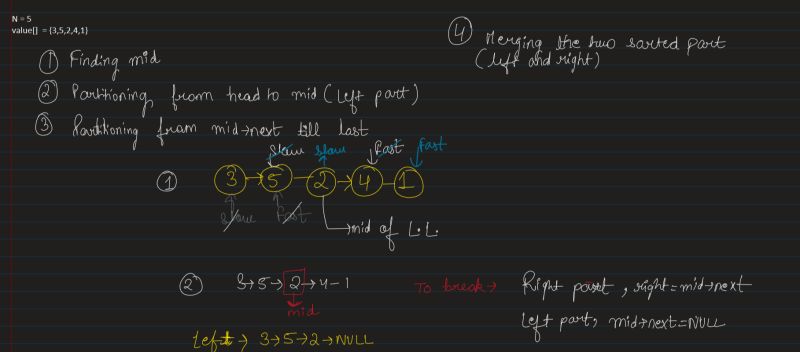 N = 5
value[] = {3,5,2,4,1}
① Finding mid
② Partitioning from head to mid (Left part)
③ Partitioning from mid→next till last
④ Merging the two sorted part
(left and right)
Slow Slow Fast Fast
① 3 → 5 – 2 → 4 – 1
Slow Fast
→ mid of L.L.
② 3→5→2→4–1
mid
To break→
Right part, right=mid→next
Left part, mid→next=NULL
Left → 3→5→2→NULL